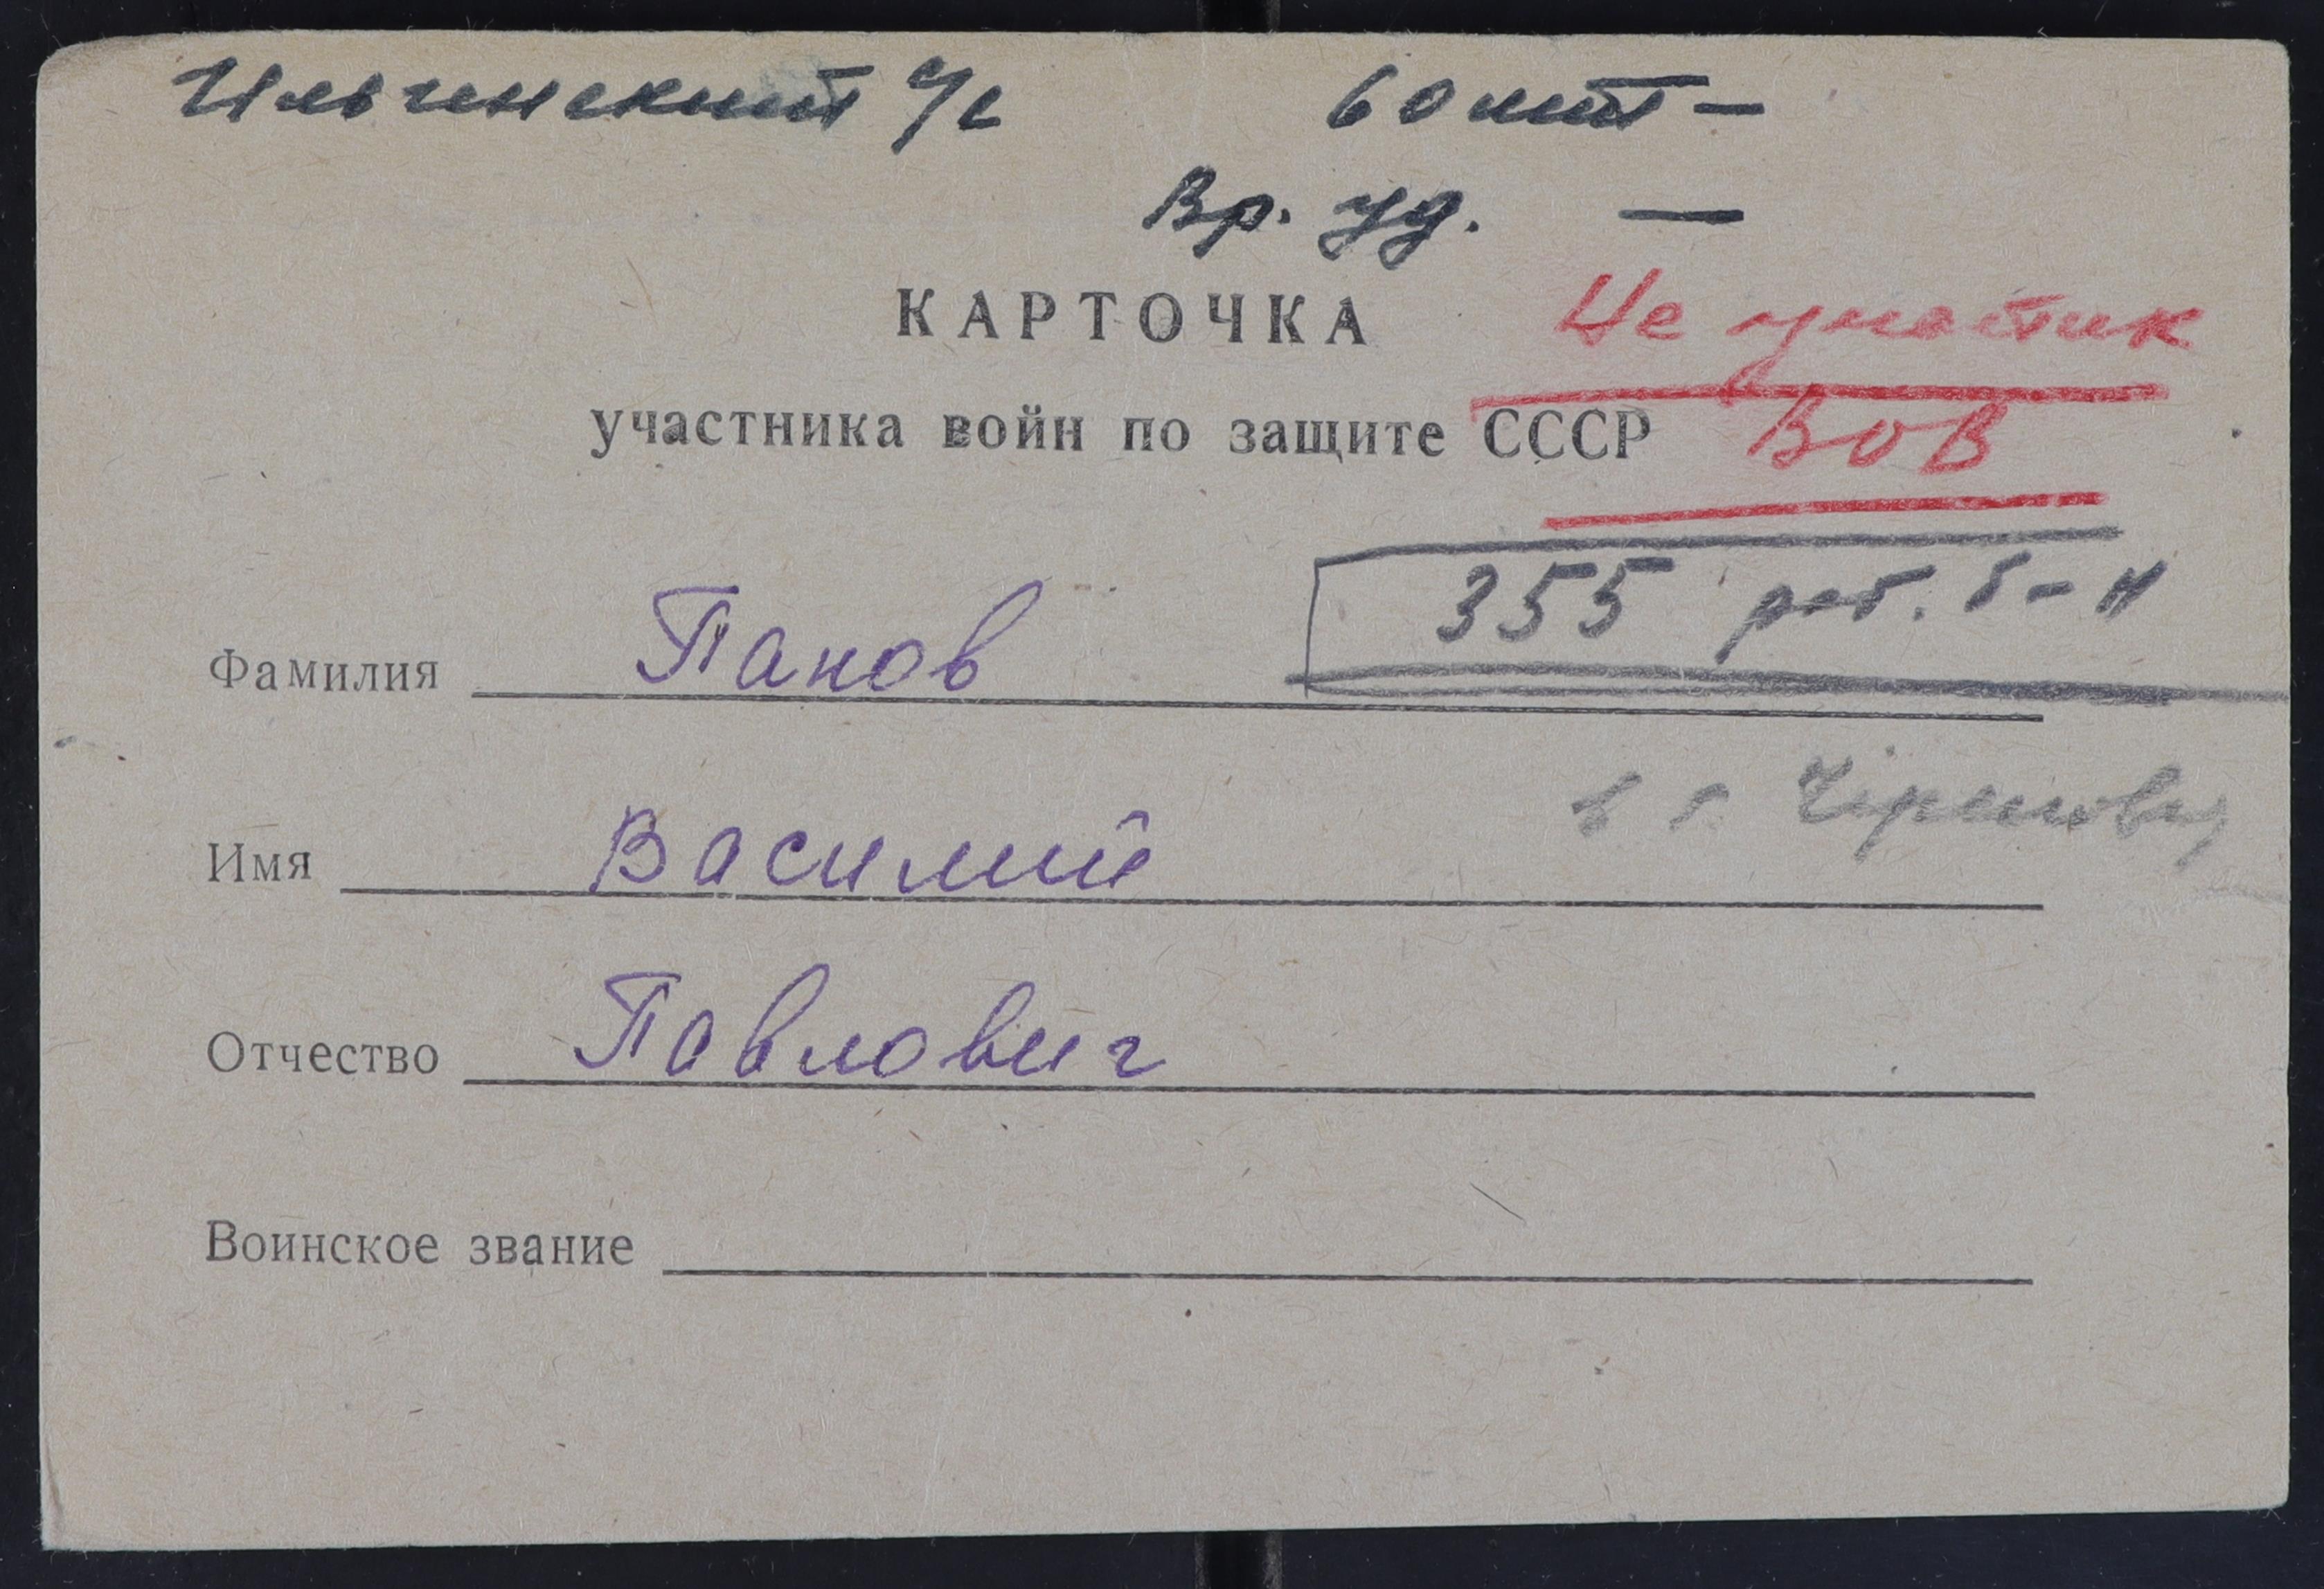 Ильинский с/с 60 лет —
Вр. уд. —
КАРТОЧКА Не участик
участника войн по защите СССР ВОВ
355 раб. б-н
Фамилия Панов
в г.
Имя Василий
Отчество Павлович
Воинское звание